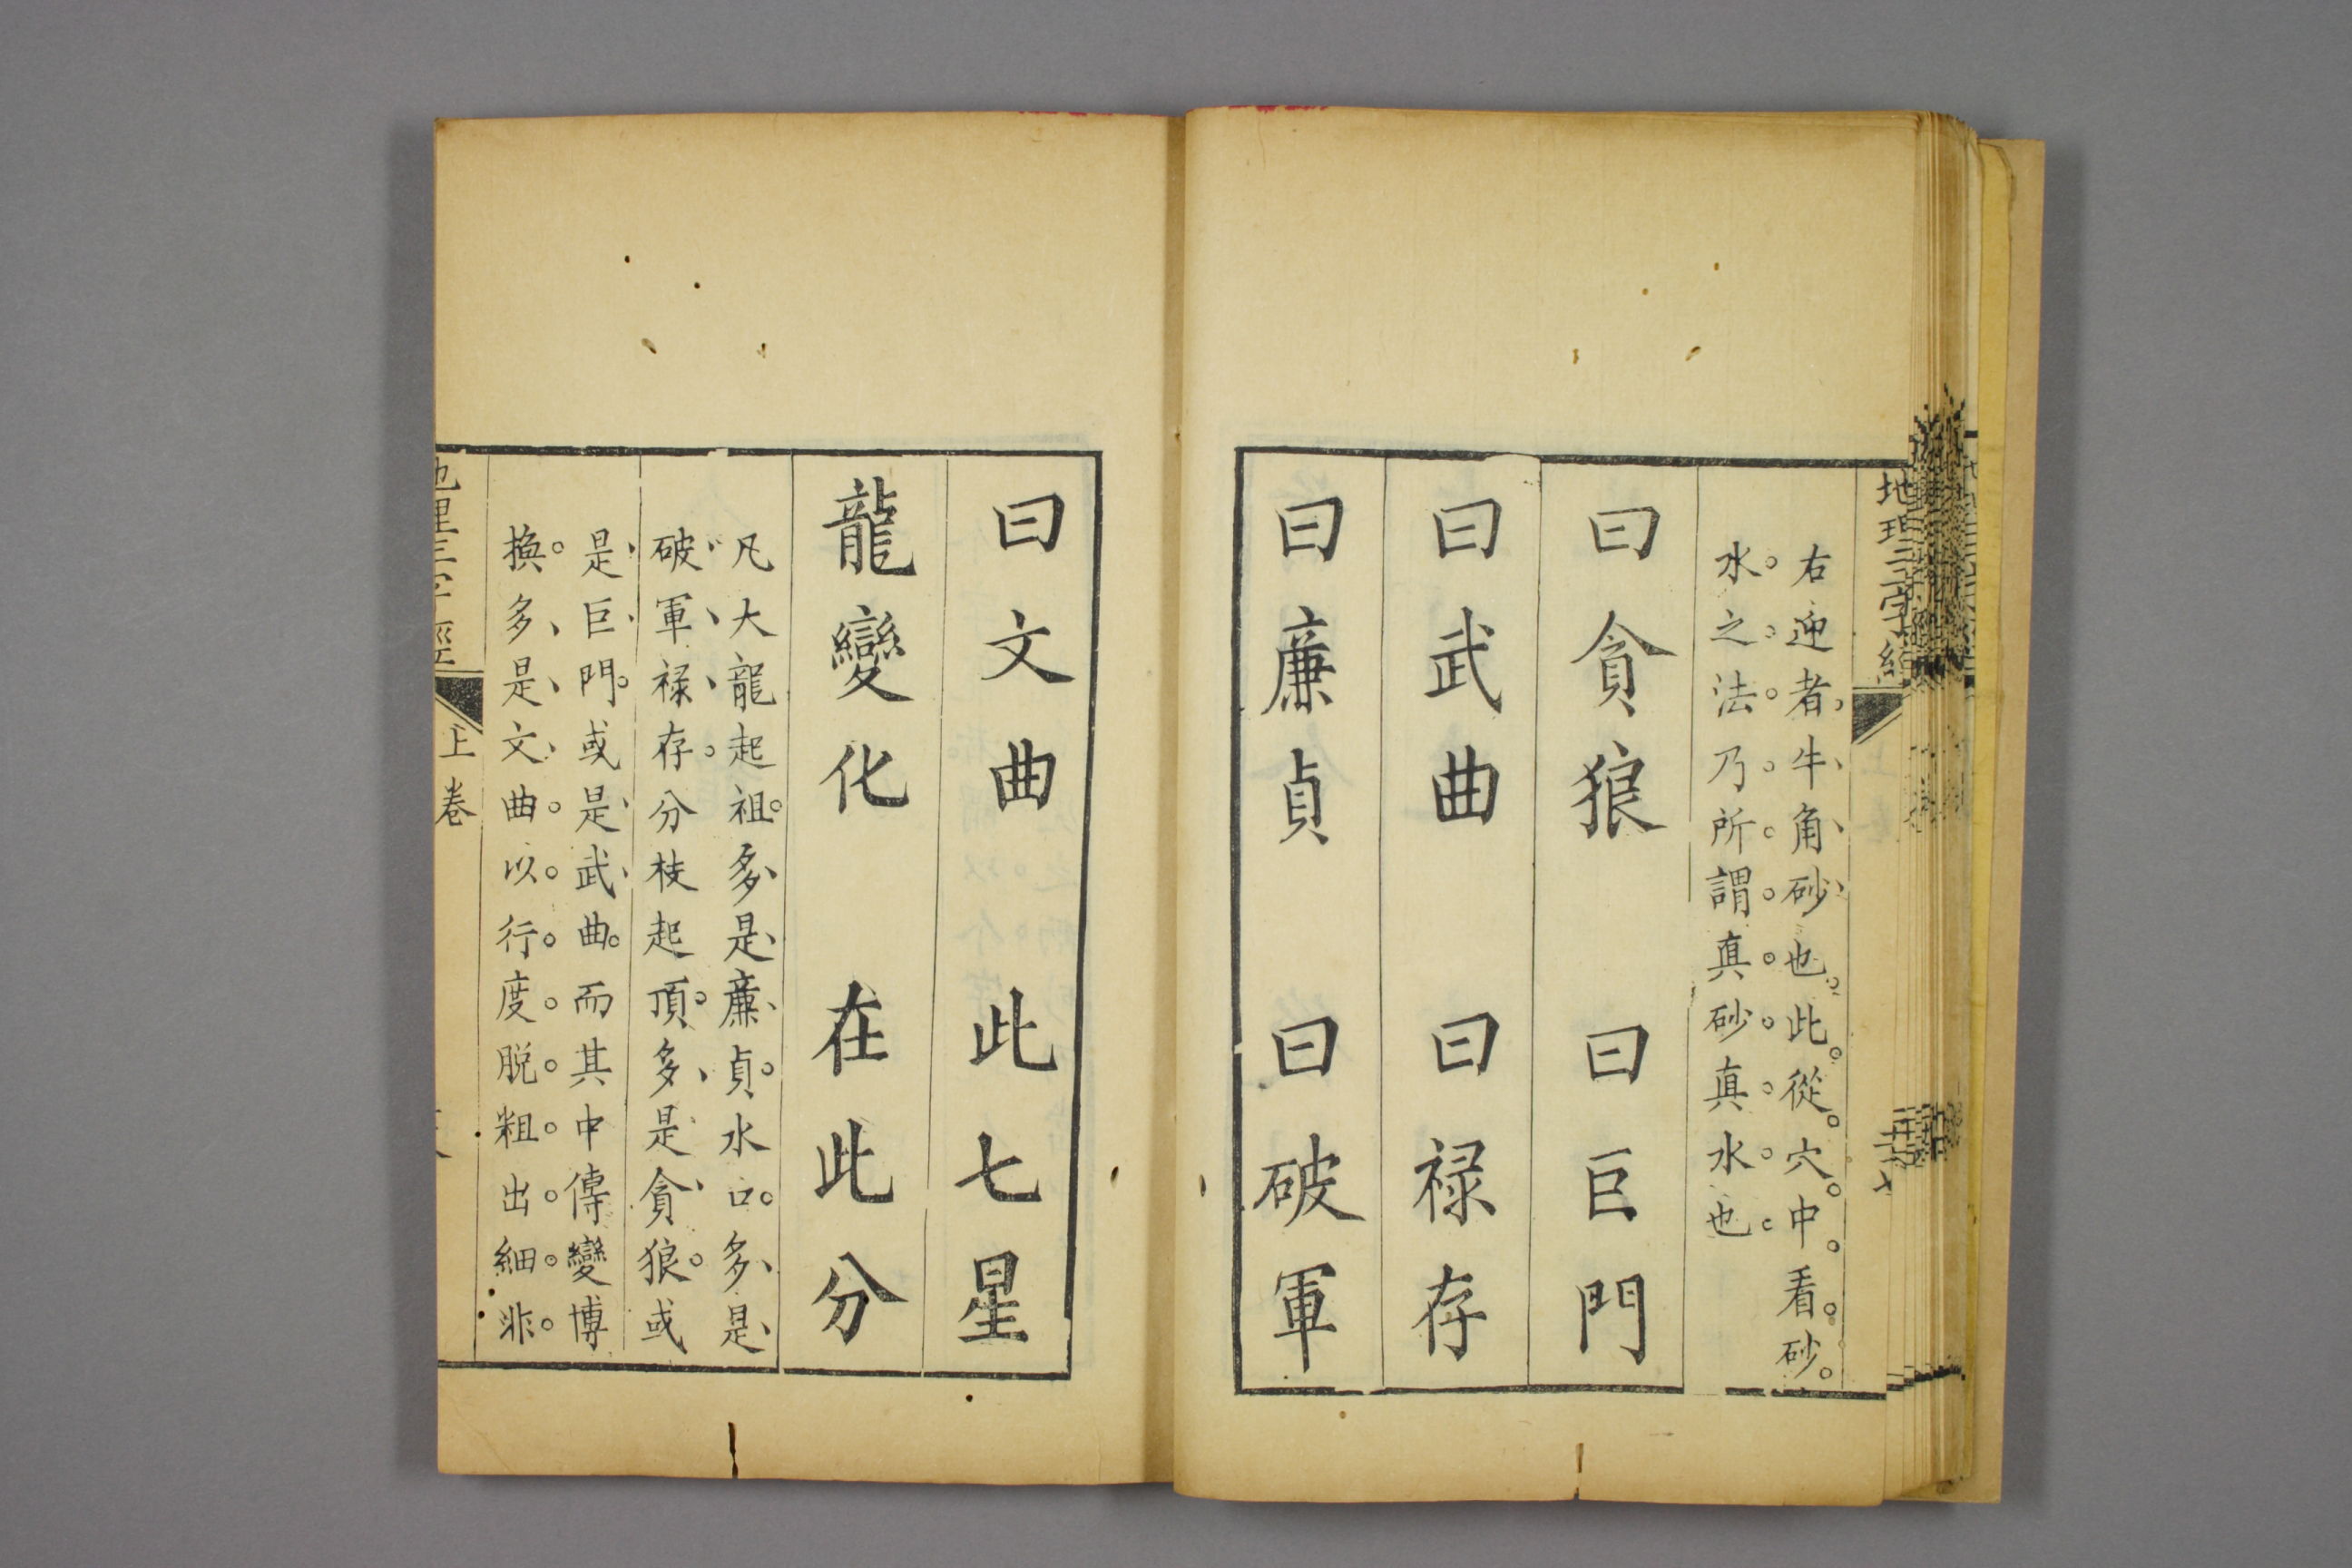 地理三字經
右迎者牛角砂也此從穴中看砂
水之法乃所謂真砂真水也
曰貪狼　曰巨門
曰武曲　曰祿存
曰廉貞　曰破軍
曰文曲　此七星
龍變化　在此分
凡大龍起祖多是廉貞水口多是
破軍祿存分枝起頂多是貪狼或
是巨門或是武曲而其中傳變博
換多是文曲以行度脫粗出細非
地理三字經
上卷